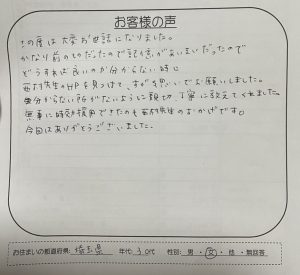 お客様の声
この度は大変お世話になりました。
かなり前のものだったので記憶があいまいだったので
どうすれば良いのか分からない時、
西村先生のHPを見つけて、すがる思いでお願いしました。
分からない所がないように親切、丁寧に教えてくれました。
無事に時効援用できたのも西村先生のおかげです。
今回はありがとうございました。
お住まいの都道府県: 埼玉県 年代: 30代 性別: 男・女・他・無回答